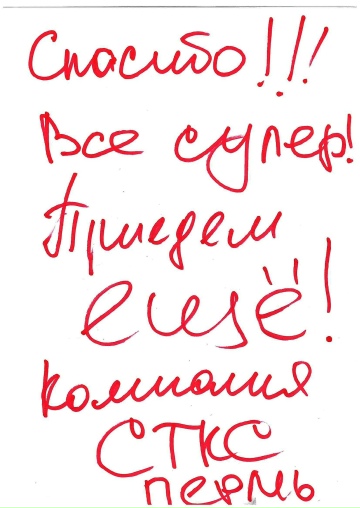 Спасибо!!!
Все супер!
Приедем
ещё!
Компания
СТКС
пермь